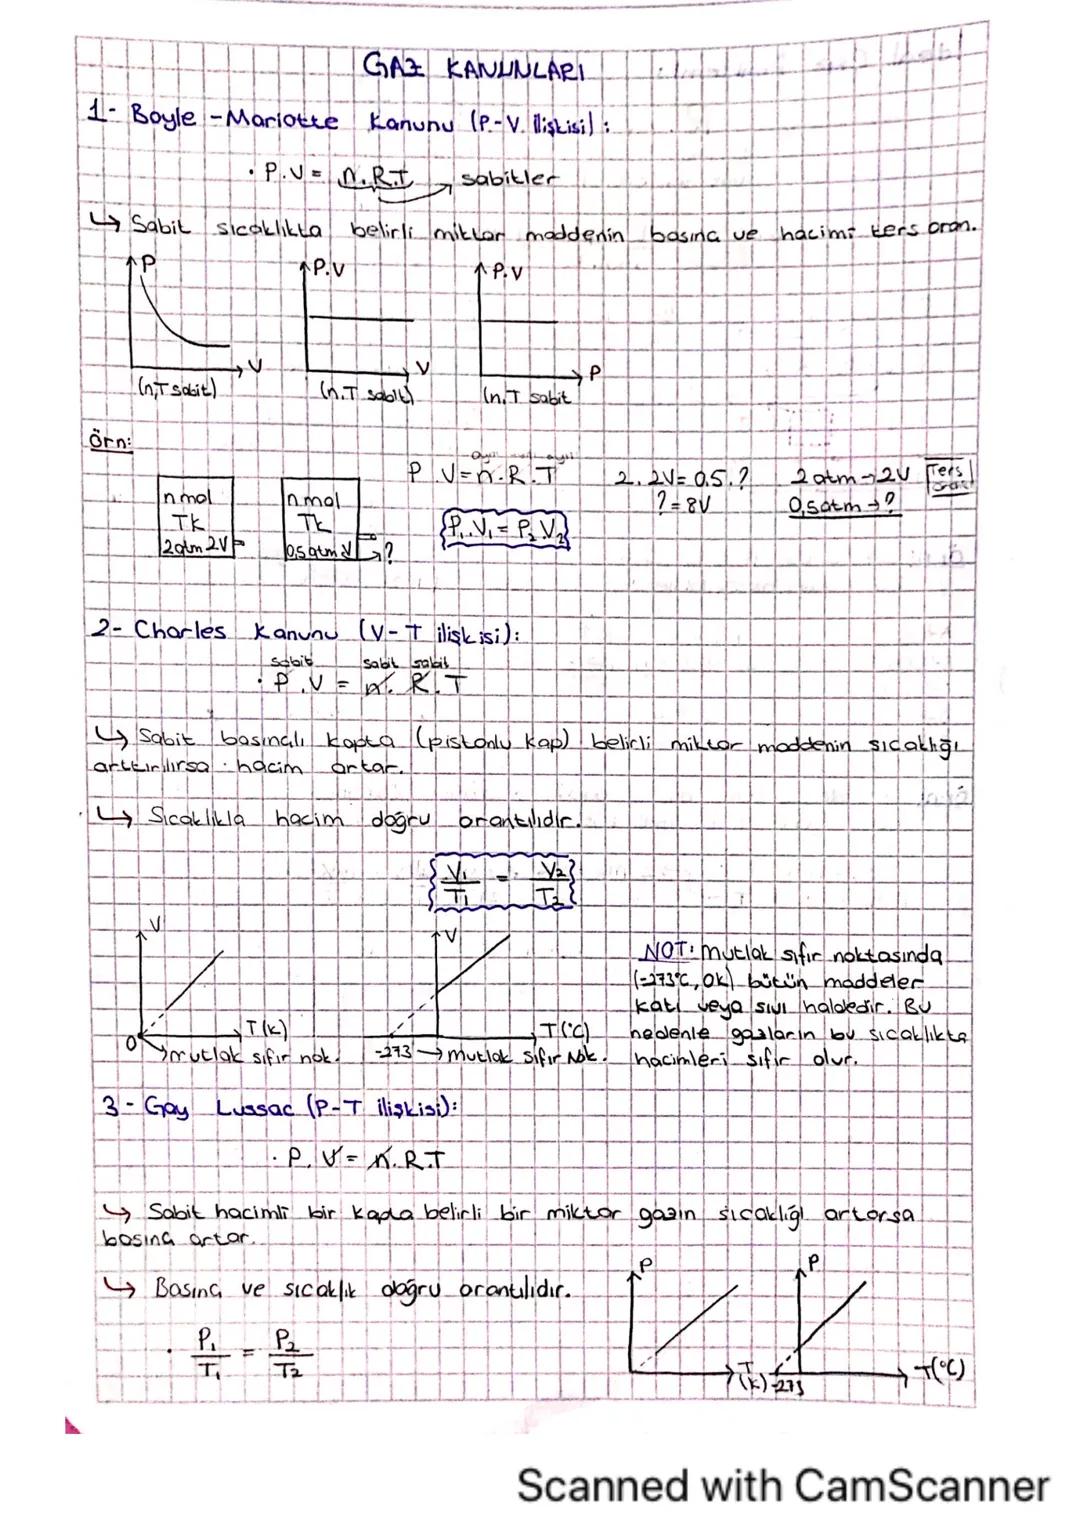 GAZ KANUNLARI
1- Boyle -Mariotte Kanunu (P-V İlişkisi) :
• P.V = n.R.T → sabitler
↳ Sabit sıcaklıkta belirli miktar maddenin basınç ve hacimi ters oran.
P P.V P.V
V V P
(n,T sabit) (n.T sabit) (n.T sabit
Örn:
P V = n.R.T 2. 2V = 0.5.? 2 atm → 2V Ters
n mol n.mol ? = 8V 0,5 atm → ?
TK TK P1.V1 = P2.V2
2 atm 2V 0,5 atm V → ?
2- Charles Kanunu (V-T ilişkisi):
sabit sabit sabit
• P.V = n.R.T
↳ Sabit basınçlı kapta (pistonlu kap) belirli miktar maddenin sıcaklığı
arttırılırsa hacim artar.
↳ Sıcaklıkla hacim doğru orantılıdır.
V1/T1 = V2/T2
V V
NOT: Mutlak sıfır noktasında
(-273°C, 0K) bütün maddeler
katı veya sıvı haldedir. Bu
T(K) T(°C) nedenle gazların bu sıcaklıkta
0 mutlak sıfır nok. -273 → mutlak sıfır Nok. hacimleri sıfır olur.
3- Gay Lussac (P-T ilişkisi):
• P.V = n.R.T
↳ Sabit hacimli bir kapta belirli bir miktar gazın sıcaklığı artarsa
basınç artar.
P P
↳ Basınç ve sıcaklık doğru orantılıdır.
• P1/T1 = P2/T2
T (K) -273 T(°C)
Scanned with CamScanner